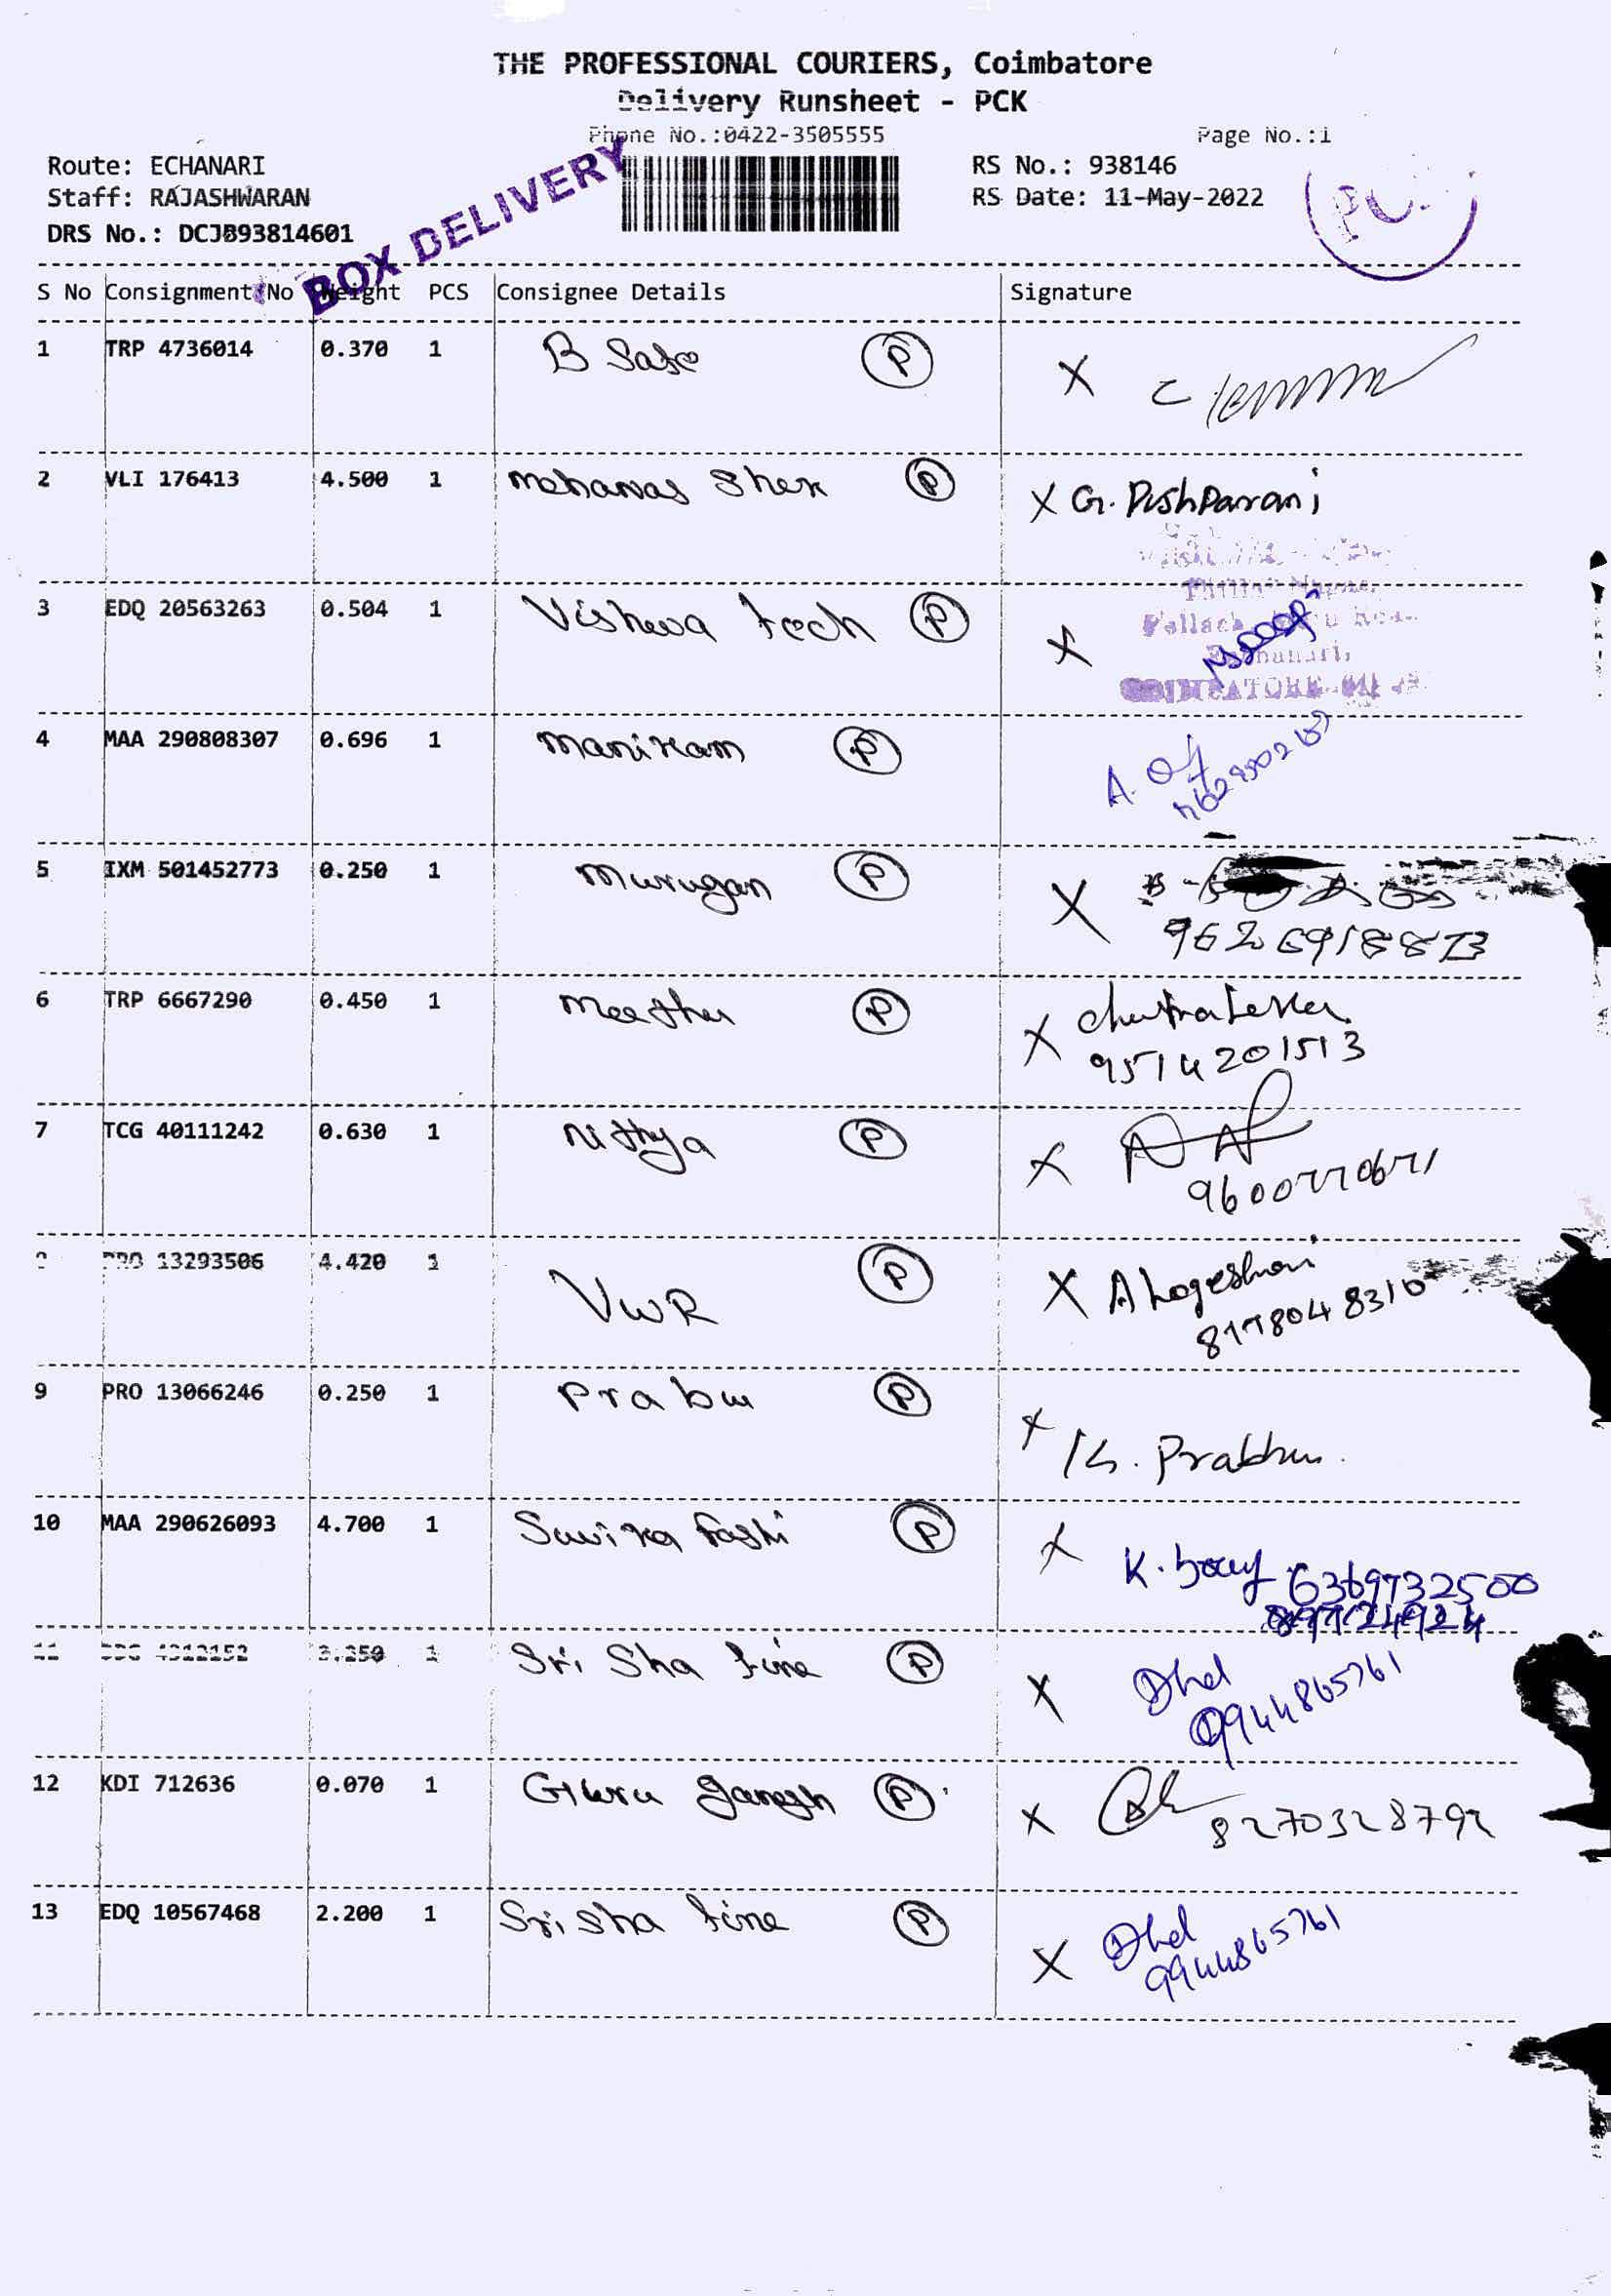 THE PROFESSIONAL COURIERS, Coimbatore
Delivery Runsheet - PCK
Phone No.:0422-3505555 Page No.:1
Route: ECHANARI RS No.: 938146
Staff: RAJASHWARAN RS Date: 11-May-2022
DRS No.: DCJB93814601
BOX DELIVERY
S No Consignment No Weight PCS Consignee Details Signature
1 TRP 4736014 0.370 1 B P X
2 VLI 176413 4.500 1 P X G. Pushparani
3 EDQ 20563263 0.504 1 Vishwa Tech P X
COIMBATORE
4 MAA 290808307 0.696 1 Manikam P
5 IXM 501452773 0.250 1 Murugan P X
9626918873
6 TRP 6667290 0.450 1 P X
9514201513
7 TCG 40111242 0.630 1 Nithya P X
9600770671
13293506 4.420 1 VWR P X A Logeshwari
8178048310
9 PRO 13066246 0.250 1 Prabu P X K. Prabhu.
10 MAA 290626093 4.700 1 P X
6369732500
4312152 3.250 1 Sri Sha Fine P X
9944865761
12 KDI 712636 0.070 1 Guru Ganesh P X
8270328792
13 EDQ 10567468 2.200 1 Sri Sha Fine P X
9944865761